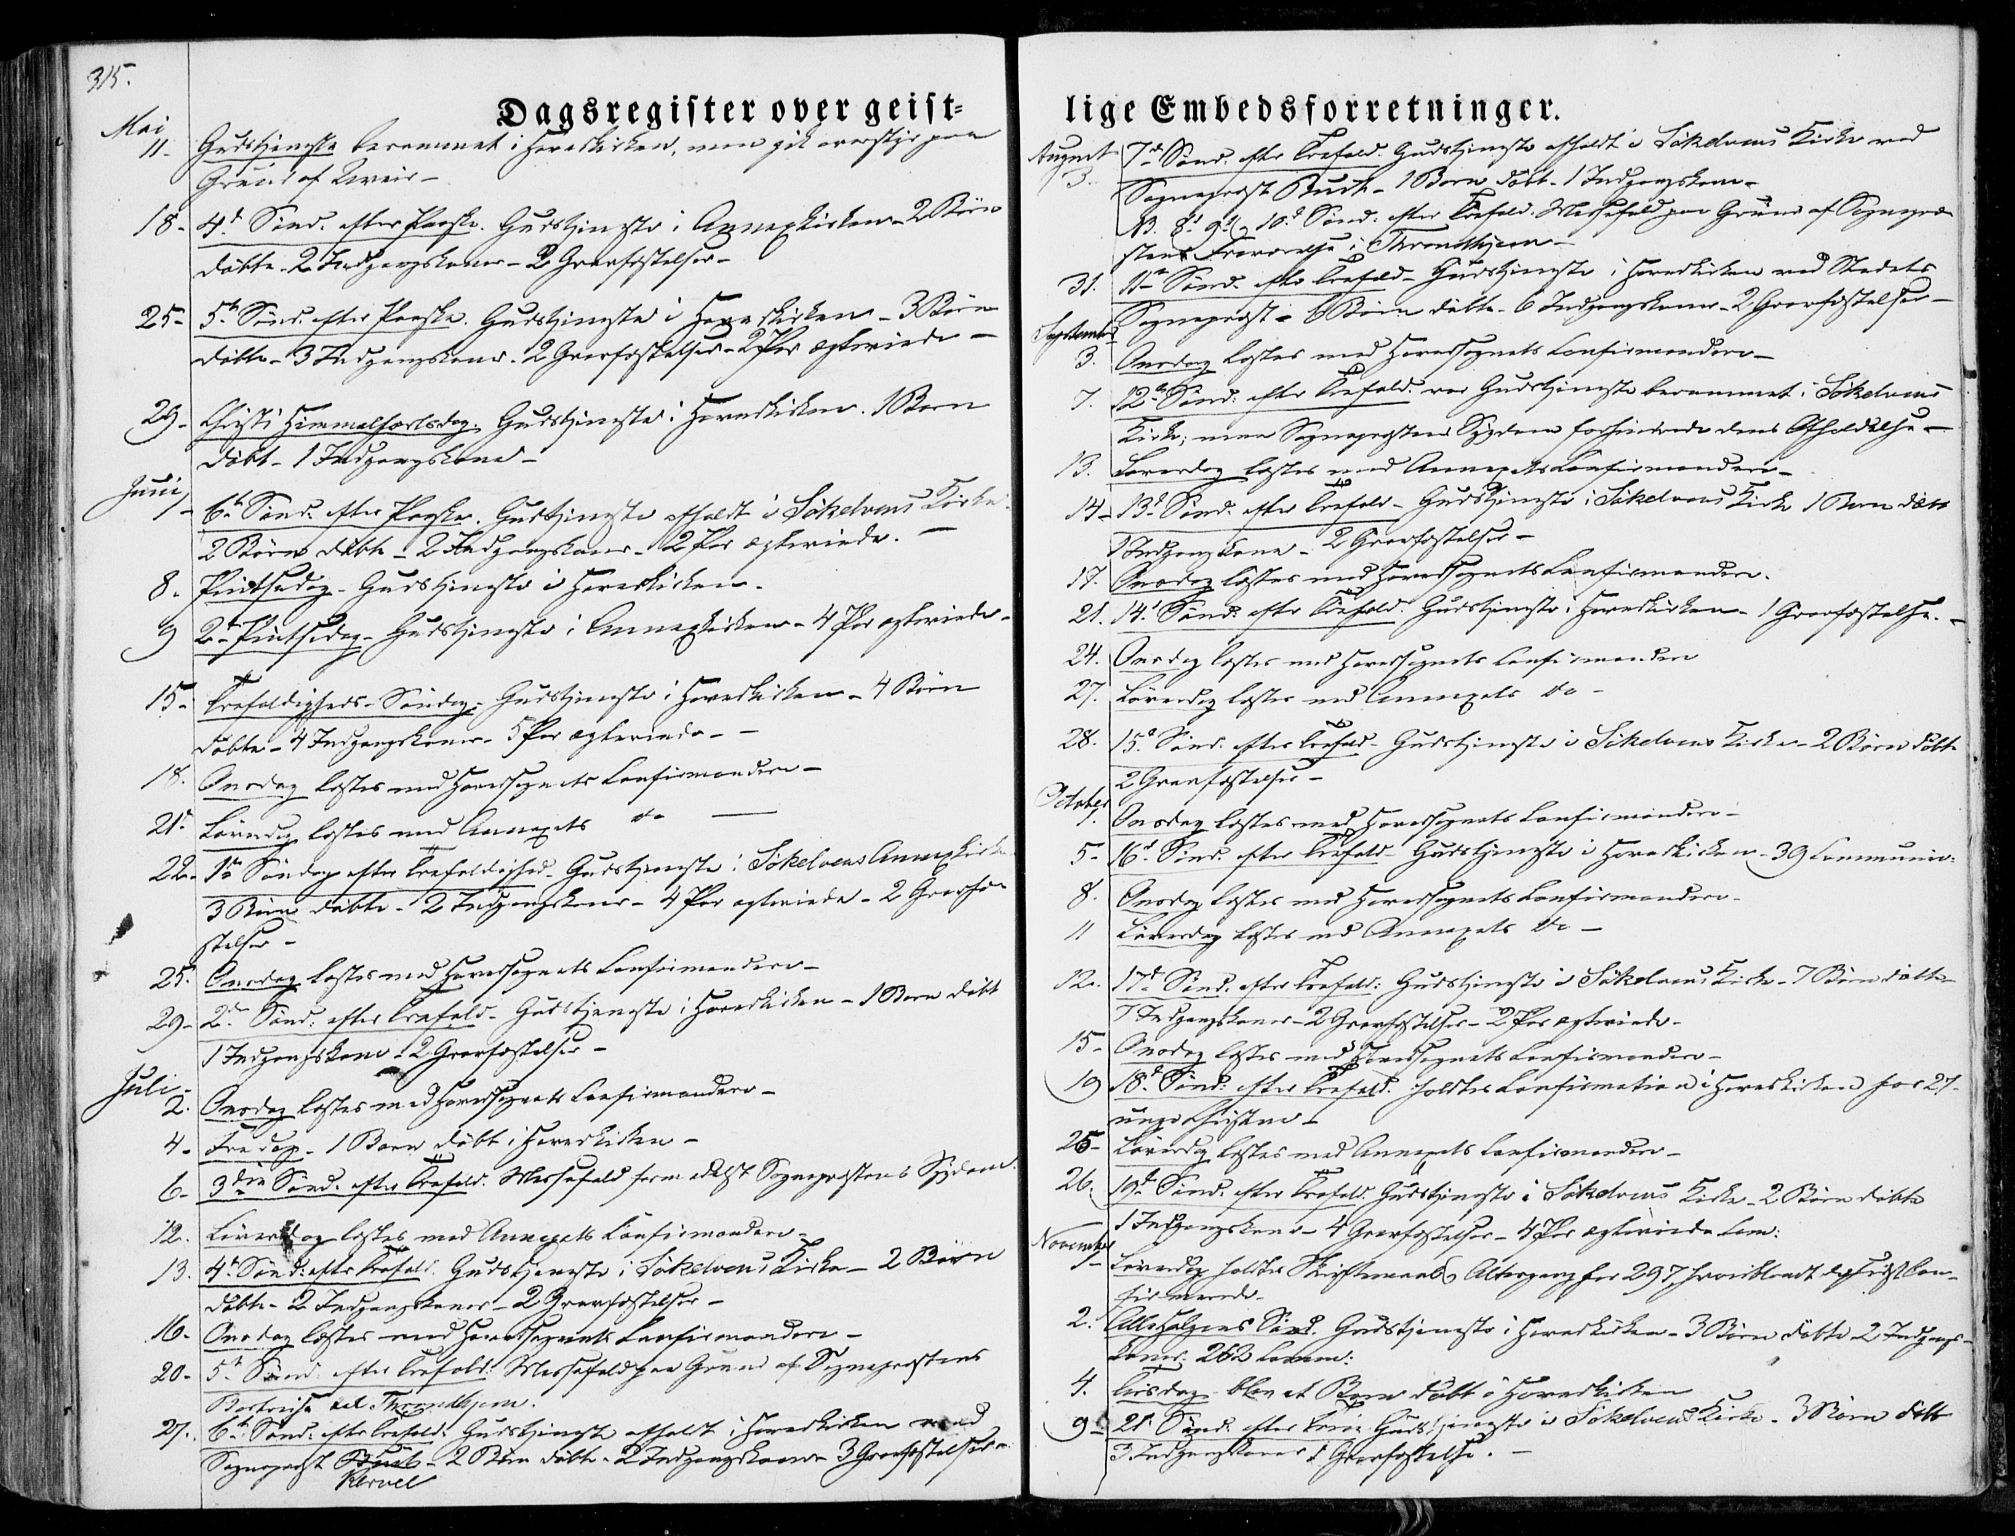 315.
Dagsregister over geist=
Mai
11- Gudstjeneste berammet i Hovedkirken, men gik overstyr paa
Grund af Uveir-
18- 4d Sønd. efter Paaske. Gudstjeneste i Annexkirken- 2 Børn
døbte- 2 Indgangskoner- 2 Gravfæstelser-
25- 5te Sønd. efter Paaske. Gudstjeneste i Hovedkirken- 3 Børn
døbte- 3 Indgangskoner- 2 Gravfæstelser- 2 Par ægteviede-
29- Christi Himmelfartsdag. Gudstjeneste i Hovedkirken. 1 Barn
døbt- 1 Indgangskone-
Juni
1- 6te Sønd. efter Paaske. Gudstjeneste afholdt i Søkelvens Kirke.
2 Børn døbte- 2 Indgangskoner- 2 Par ægteviede.-
8- Pintsedag- Gudstjeneste i Hovedkirken.
9 2d Pintsedag- Gudstjeneste i Annexkirken- 4 Par ægteviede-
15- Trefoldigheds-Søndag- Gudstjeneste i Hovedkirken- 4 Børn
døbte- 4 Indgangskoner- 5 Par ægteviede--
18. Onsdag læstes med Hovedsognets Confirmandere-
21. Løverdag læstes med Annexets do -
22- 1ste Søndag efter Trefoldighed- Gudstjeneste i Søkelvens Annexkirke
3 Børn døbte- 2 Indgangskoner- 4 Par ægteviede- 2 Gravfæ-
stelser-
25. Onsdag læstes med Hovedsognets Confirmandere-
29- 2den Sønd: efter Trefold- Gudstjeneste i Hovedkirken- 1 Barn døbt
1 Indgangskone- 2 Gravfæstelser-
Juli-
2. Onsdag læstes med Hovedsognets Confirmandere-
4- Fredag- 1 Barn døbt i Hovedkirken-
6- 3die Sønd. efter Trefold. Messefald formedelst Sognepræstens Sygdom.
12. Løverdag læstes med Annexets Confirmandere-
13. 4d Sønd: efter Trefold. Gudstjeneste i Søkelvens Kirke- 2 Børn
døbte- 2 Indgangskoner- 2 Gravfæstelser-
16- Onsdag læstes med Hovedsognets Confirmandere-
20- 5te Sønd. efter Trefold: Messefald paa Grund af Sognepræstens
Bortreise til Throndhjem.
27. 6te Sønd. efter Trefold: Gudstjeneste afholdt i Hovedkirken ved
Sognepræst - 2 Børn døbte- 2 Indgangskoner- 3 Gravfæstelser.
lige Embedsforretninger.
August
3. 7d Sønd. efter Trefold. Gudstjeneste afholdt i Søkelvens Kirke ved
Sognepræst Budt- 1 Barn døbt- 1 Indgangskone-
NB. 8d 9d og 10d Sønd: efter Trefold. Messefald paa Grund af Sognepræ-
stens Fraværelse i Throndhjem-
31. 11te Sønd. efter Trefold- Gudstjeneste i Hovedkirken ved Stedets
Sognepræst- 6 Børn døbte- 6 Indgangskoner- 2 Gravfæstelser-
September
3. Onsdag læstes med Hovedsognets Confirmandere-
7. 12te Sønd: efter Trefold. var Gudstjeneste berammet i Søkelvens
Kirke; men Sognepræstens Sygdom forhindrede dens Afholdelse-
13. Løverdag læstes med Annexets Confirmandere-
14- 13d Sønd. efter Trefold- Gudstjeneste i Søkelvens Kirke 1 Barn døbt
1 Indgangskone- 2 Gravfæstelser-
17. Onsdag læstes med Hovedsognets Confirmandere.
21. 14d Sønd: efter Trefold. Gudstjeneste i Hovedkirken- 1 Gravfæstelse.-
24. Onsdag læstes med Hovedsognets Confirmandere
27. Løverdag læstes med Annexets do-
28. 15d Sønd. efter Trefold- Gudstjeneste i Søkelvens Kirke- 2 Børn døbte
2 Gravfæstelser-
October
1. Onsdag læstes med Hovedsognets Confirmandere-
5- 16d Sønd. efter Trefold- Gudstjeneste i Hovedkirken- 39 Communic:
8. Onsdag læstes med Hovedsognets Confirmandere-
11 Løverdag læstes med Annexets do-
12. 17d Sønd: efter Trefold: Gudstjeneste i Søkelvens Kirke- 7 Børn døbte
7 Indgangskoner- 2 Gravfæstelser- 2 Par ægteviede-
15- Onsdag læstes med Hovedsognets Confirmandere-
19 18d Sønd: efter Trefold. holdtes Confirmation i Hovedkirken for 27
unge Christne-
25- Løverdag læstes med Annexets Confirmandere-
26. 19d Sønd. efter Trefold. Gudstjeneste i Søkelvens Kirke- 2 Børn døbte
1 Indgangskone- 4 Gravfæstelser- 4 Par ægteviede Com:
November
1- Løverdag holdtes Skriftemaal og Altergang for 297, hvoriblandt de sidst Con-
firmerede-
2. Allehelgens Sønd. Gudstjeneste i Hovedkirken- 3 Børn døbte 2 Indgangs-
koner: 262 Comm:
4. Tirsdag blev et Barn døbt i Hovedkirken
9d 21d Sønd: efter Trin: Gudstjeneste i Søkelvens Kirke- 3 Børn døbte
3 Indgangskoner 1 Gravfæstelse.-